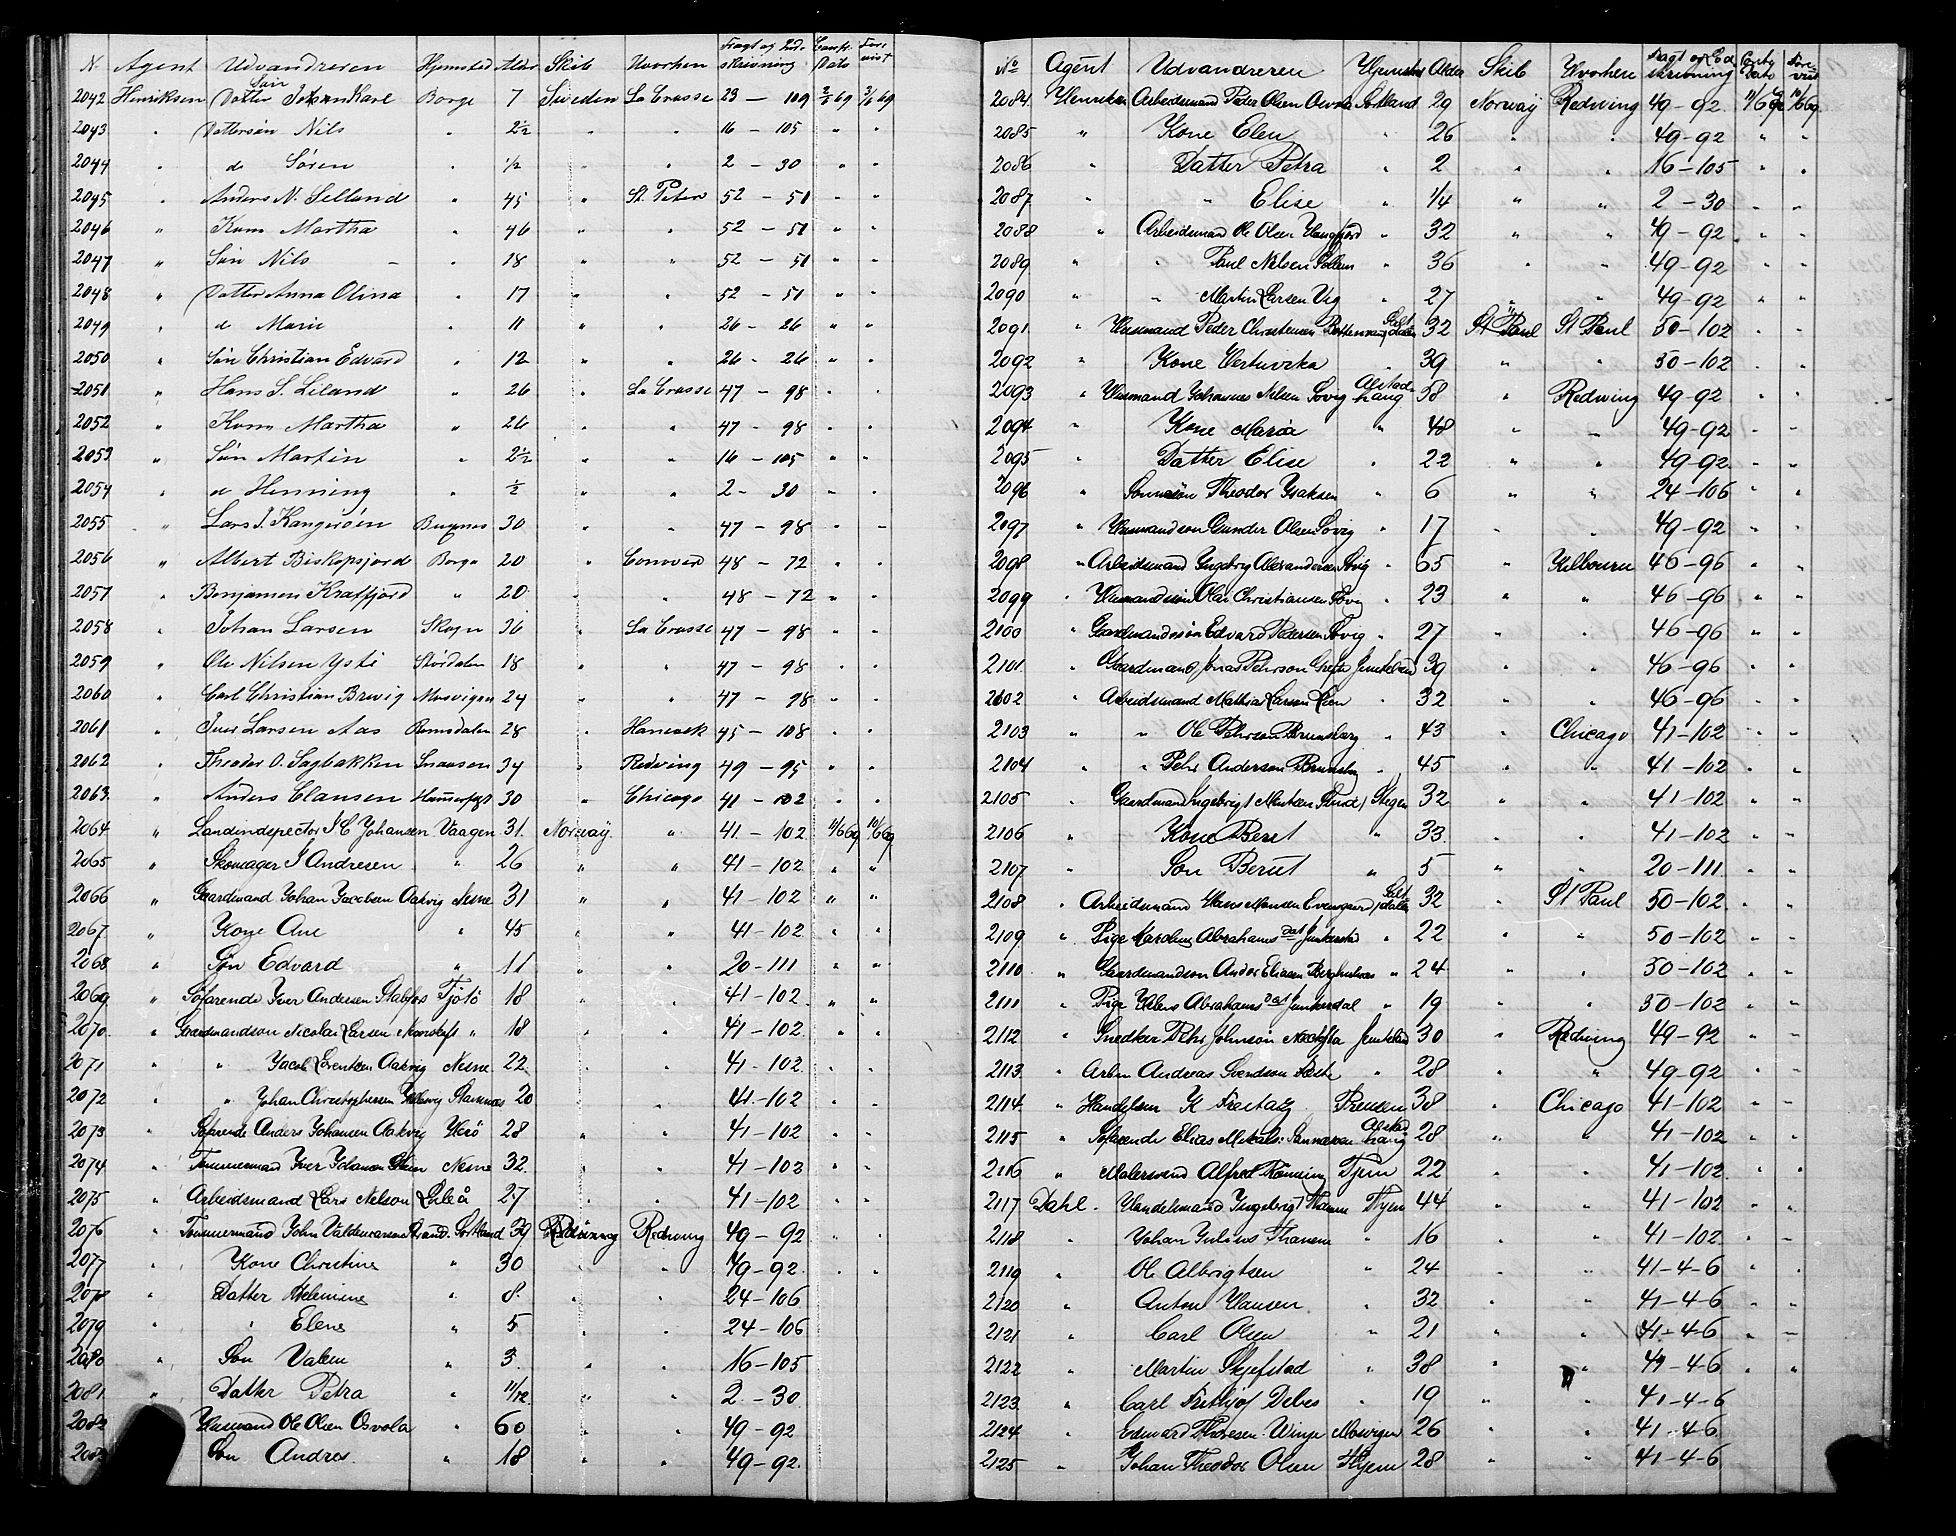 N. Agent Udvandreren Hjemsted Alder Skib Hvorhen Fragt og Ind-skrivning Contr. Dato Fore vist
2042 Henriksen Søn Johan Karl Borge 7 Sweden La Crosse 23 — 109
2043 " Dattersøn Nils " 2½ " " 16 — 105 " "
2044 " do Søren " ½ " " 2 — 30 " "
2045 " Anders N. Lelland " 45 " St. Peter 52 — 51 " "
2046 " Kone Martha " 46 " " 52 — 51 " "
2047 " Søn Nils " 18 " " 52 — 51 " "
2048 " Datter Anna Olina " 17 " " 52 — 51 " "
2049 " do Marie " 11 " " 26 — 26 " "
2050 " Søn Christian Edvard " 12 " " 26 - 26 " "
2051 " Hans S. Leland " 26 " La Crosse 47 — 98 " "
2052 " Kone Martha " 26 " " 47 — 98 " "
2053 " Søn Martin " 2½ " " 16 — 105 " "
2054 " do Henning " ½ " " 2 - 30 " "
2055 " Lars J. Kangerøen 30 " " 47 — 98 " "
2056 " Albert Biskopsjord Borge 20 " Conover 48 — 72 " "
2057 " Benjamin Kratfjord " 20 " " 48 — 72 " "
2058 " Johan Larsen Skogn 36 " La Crosse 47 — 98 " "
2059 " Ole Nilsen Ysti Størdalen 18 " " 47 — 98 " "
2060 " Carl Christian Brevig Mosvigen 24 " " 47 — 98 " "
2061 " Iver Larsen Aas Romsdalen 28 " Hancock 45 — 108 " "
2062 " Theodor O. Sagbakken Snaasen 34 " Redwing 49 — 95 " "
2063 " Anders Clausen Hammerfest 30 " Chicago 41 — 102 " "
2064 " Landindspector J C Johansen Vaagen 31 Norway " 41 — 102 11/6 69 10/6 69
2065 " Skomager J Andresen " 26 " " 41 — 102 " "
2066 " Gaardmand Johan Jacobsen Aakvig Nesne 31 " " 41 — 102 " "
2067 " Kone Ane " 45 " " 41 — 102 " "
2068 " Søn Edvard " 11 " " 20 — 111 " "
2069 " Søfarende Iver Andersen Tjøtø 18 " " 41 — 102 " "
2070 " Gaardmandsøn Nicolai Larsen " 18 " " 41 — 102 " "
2071 " " Jacob Aakvig Nesne 22 " " 41 — 102 " "
2072 " " Johan Christophersen Stamnes 20 " " 41 — 102
2073 " Søfarende Anders Johansen Aakvig Herø 28 " " 41 — 102 " "
2074 " Tømmermand Iver Johansen Nesne 32 " " 41 — 102 " "
2075 " Arbeidsmand Lars Nelson 27 " " 41 — 102 " "
2076 " Tømmermand John Valdemarsen Sortland 39 Redwing 49 — 92 " "
2077 " Kone Christine " 30 " " 49 — 92 " "
2078 " Datter Helmine " 8 " " 24 — 106
2079 " " Elene " 5 " " 24 — 106
2080 " Søn Valen " 3 " " 16 — 105
2081 " Datter Petra " 11/12 " " 2 — 30
2082 Husmand Ole Olsen Osvola " 60 " " 49 — 92
2083 Søn Andres " 18 " " 49 — 92
No Agent Udvandreren Hjemsted Alder Skib Hvorhen Fragt og Indskrivning Contr Dato Fore vist
2084 Henriksen Arbeidsmand Peder Olsen Osvola Sortland 29 Norway Redwing 49 — 92 11/6 69 10/6 69
2085 " Kone Elen " 26 " " 49 — 92 " "
2086 " Datter Petra " 2 " " 16 — 105 " "
2087 " " Elise " 1/4 " " 2 — 30 " "
2088 " Arbeidsmand Ole Olsen " 32 " " 49 — 92 " "
2089 " " Paul Nelsen Sollem " 36 " " 49 — 92 " "
2090 " " Martin Larsen Vig " 27 " " 49 — 92 " "
2091 " Husmand Peder Christensen Saltdalen 32 St Paul St Paul 50 — 102 " "
2092 " Kone " 39 " " 50 — 102 " "
2093 " Husmand Johannes Nelsen Sovig Alstadhaug 58 " Redwing 49 — 92 " "
2094 " Kone Maria " 48 " " 49 — 92 " "
2095 " Datter Elise " 22 " " 49 — 92 " "
2096 " Sønnesøn Theodor Isaksen " 6 " " 24 — 106 " "
2097 " Husmandsøn Gunder Olsen Sovig " 17 " " 49 — 92 " "
2098 " Arbeidsmand Ingebrig Alexandersen Sovig " 65 " Kilbourn 46 — 96 " "
2099 " Husmandssøn Olai Christiansen Sovig " 23 " " 46 — 96 " "
2100 " Gaardmandssøn Edvard Pedersen Sovig " 27 " " 46 — 96 " "
2101 " Gaardmand Jonas Pehrson 39 " " 46 — 96 " "
2102 " Arbeidsmand Mathias Larsen Lien " 32 " " 46 — 96 " "
2103 " " Ole Pehrson Brunsberg " 43 " Chicago 41 — 102 " "
2104 " " Pehr Anderson Brunsberg " 45 " " 41 — 102 " "
2105 " Gaardmand Ingebrigt Stegen 32 " " 41 — 102 " "
2106 " Kone Beret " 33 " " 41 — 102 " "
2107 " Søn Berut " 5 " " 20 — 111 " "
2108 " Arbeidsmand Hans Monsen Evensgaard Saltdalen 32 " St Paul 50 — 102 " "
2109 " Pige Karoline Abrahams Dat Junkersdal " 22 " " 50 — 102 " "
2110 " Gaardmandsøn Andor Eliasen Berghulnes " 24 " " 50 — 102 " "
2111 " Pige Abrahams Dat Junkersdal " 19 " " 50 — 102 " "
2112 " Snedker Pehr Johnson 30 " Redwing 49 — 92 " "
2113 " Arbm Andreas Svendson " 28 " " 49 — 92 " "
2114 " Handelsm K Freitag Preusen 38 " Chicago 41 — 102 " "
2115 " Søfarende Elias Mikals: Sannæssen Alstadhaug 28 " " 41 — 102 " "
2116 " Malersvend Alfred Rønning Tjem 22 " " 41 — 102 " "
2117 Dahl. Handelsmand Ingebrigt Thanem Thjem 44 " " 41 — 102 " "
2118 " Johan Julius Thanem " 16 " " 41 — 102 " "
2119 " Ole Albrigtsen " 24 " " 41 — 4 - 6 " "
2120 " Anton Hansen " 32 " " 41 — 4 - 6 " "
2121 " Carl Olsen " 21 " " 41 — 4 - 6 " "
2122 " Martin Skjefstad " 38 " " 41 — 4 - 6 " "
2123 " Carl Frithjof Debes " 19 " " 41 — 4 - 6
2124 " Edward Thoresen Winge Mosvigen 26 " " 41 — 4 - 6
2125 " Johan Theodor Olsen Hjem 28 " " 41 — 4 - 6